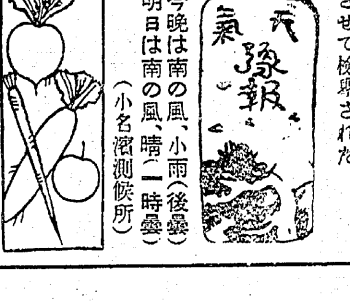 させて検挙された
天氣
豫報
今晩は南の風、小雨(後曇)
明日は南の風、晴(一時曇)
(小名濱測候所)